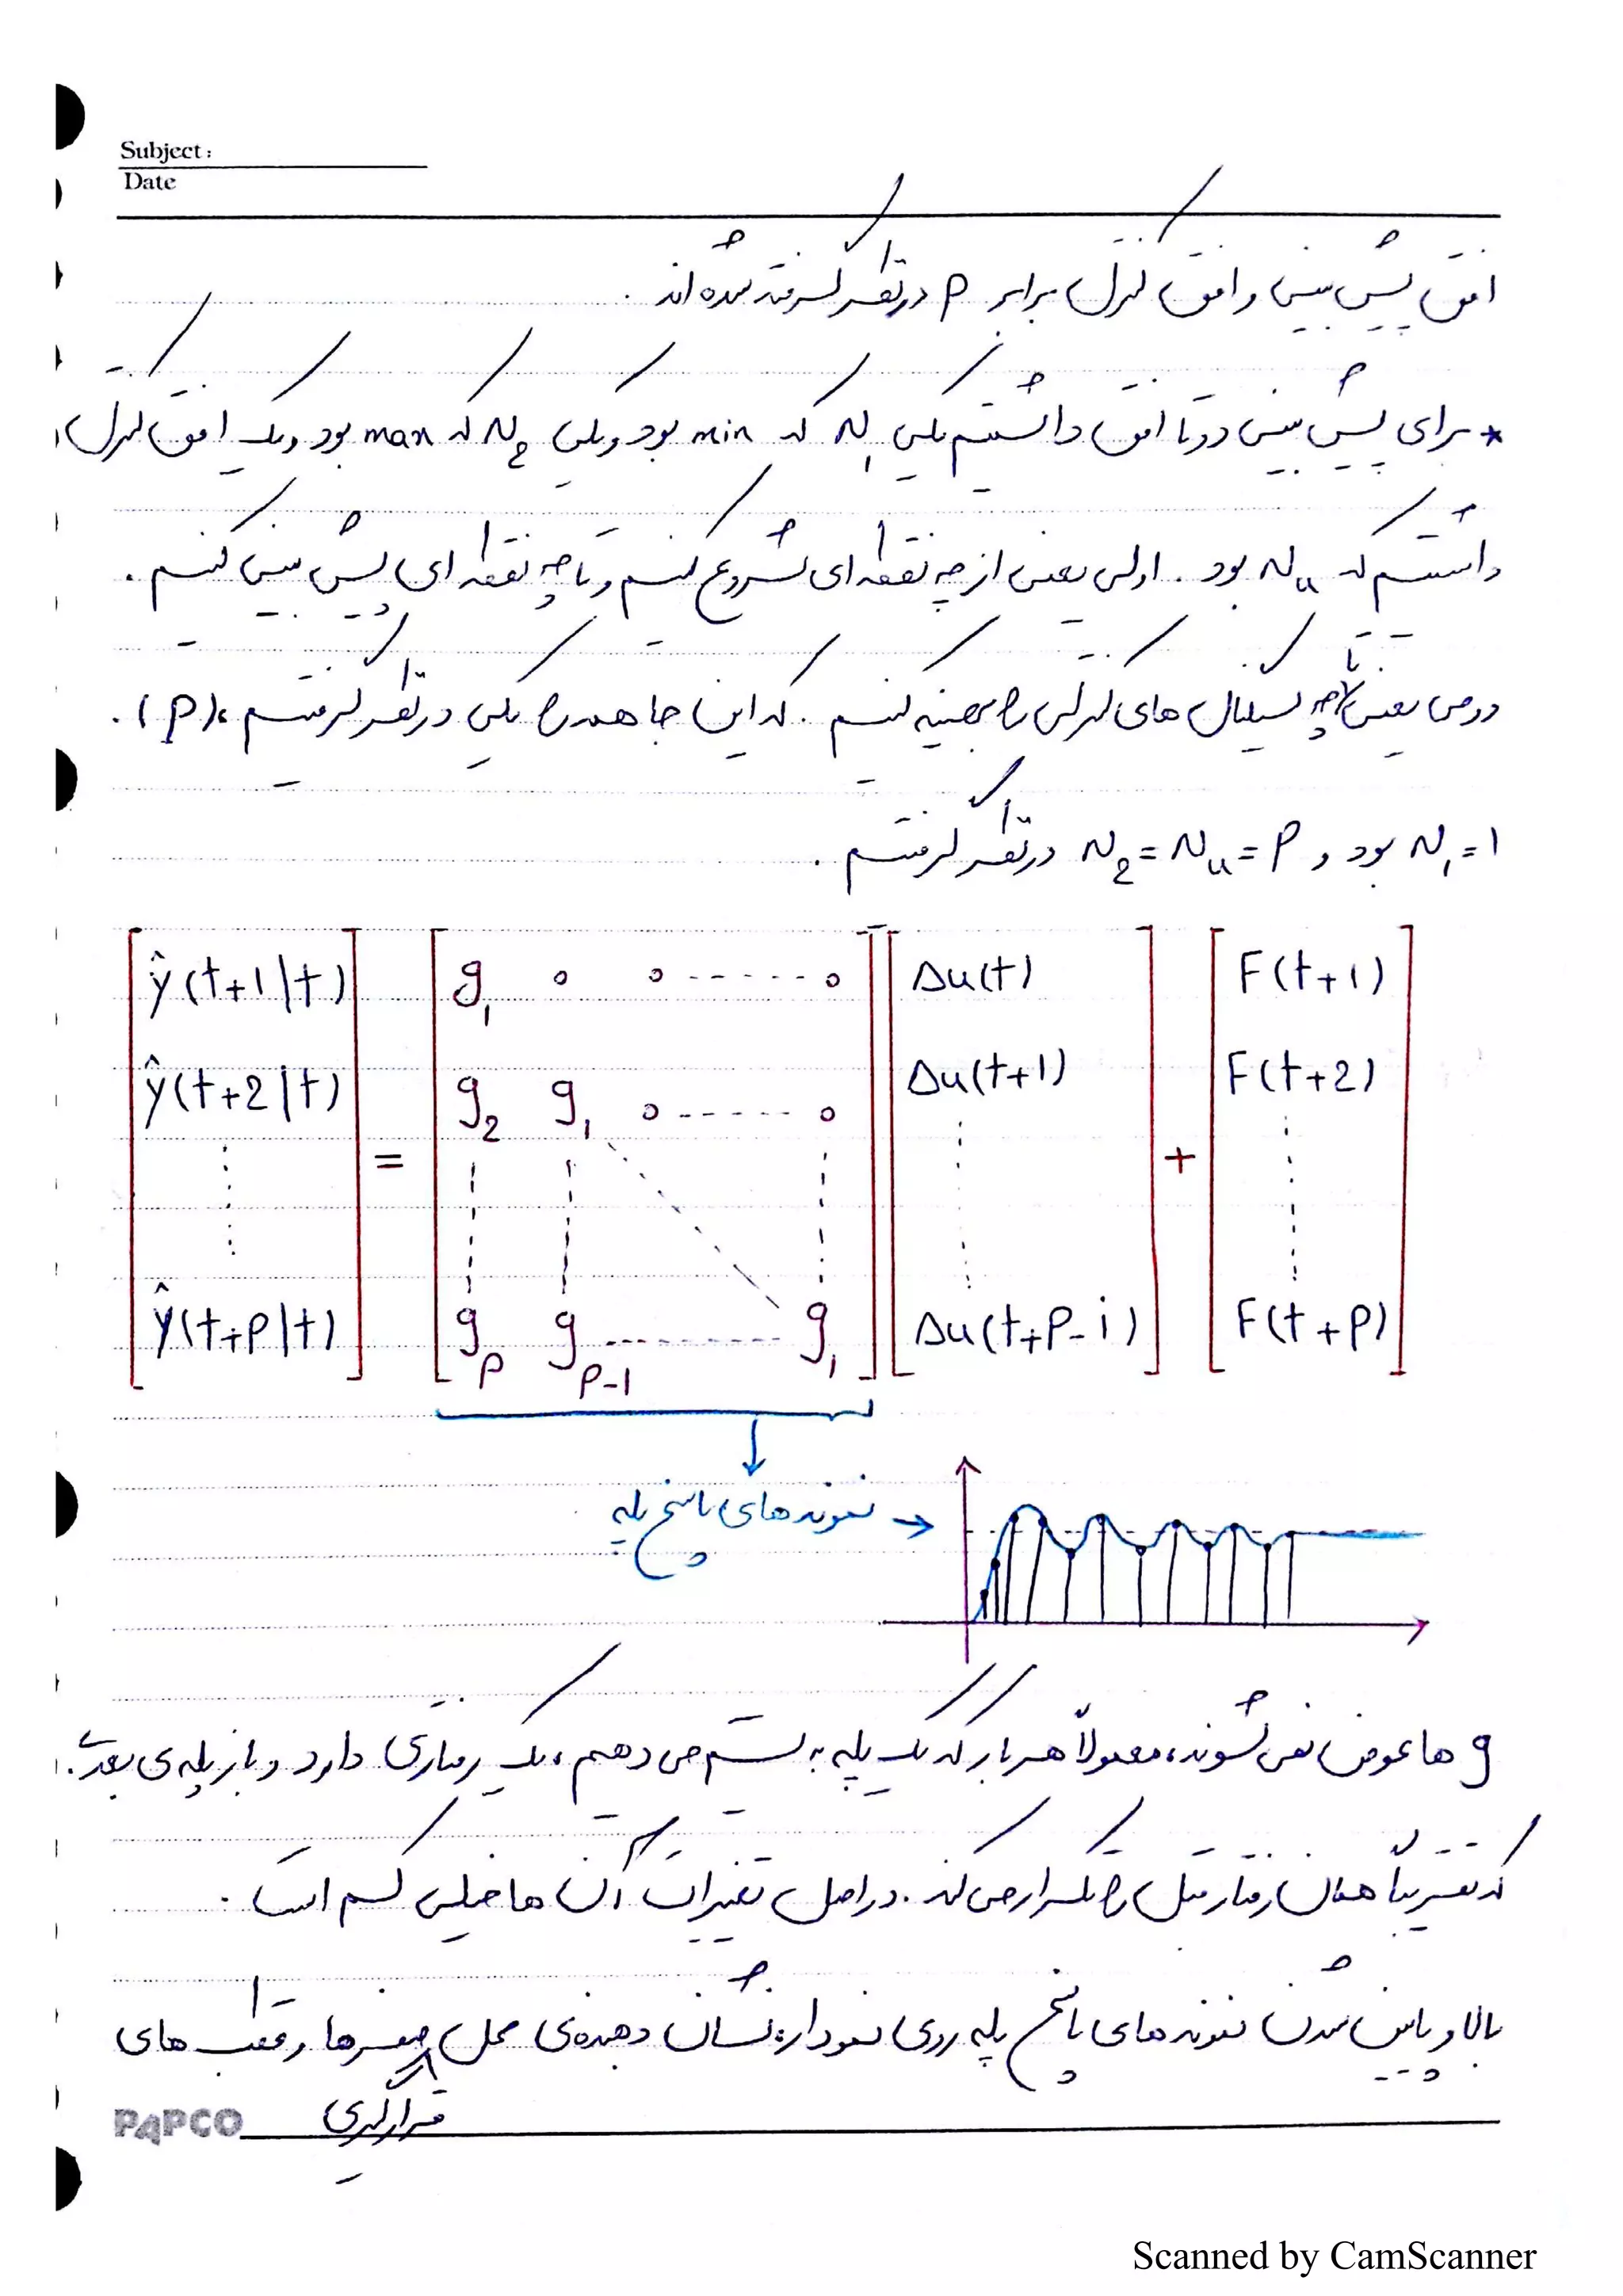 Subject:
Date
افق پیش بینی و افق کنترل برابر P در نظر گرفته شده اند .
* برای پیش بینی دو تا افق داشتیم یکی N₁ که min بود و یکی N₂ که max بود و یک افق کنترل
داشتیم که Nᵤ بود . اولی یعنی از چه نقطه ای شروع کنیم و تا چه نقطه ای پیش بینی کنیم .
دومی یعنی تا چه سیگنال های کنترلی را بهینه کنیم . که این جا همه را یکی در نظر گرفتیم ، (P) .
N₁=1 بود و N₂=Nᵤ=P در نظر گرفتیم .
ŷ(t+1|t) g₁ 0 0 ------ 0 Δu(t) F(t+1)
ŷ(t+2|t) g₂ g₁ 0 ------ 0 Δu(t+1) F(t+2)
= +
ŷ(t+P|t) g_P g_P-1 ------ g₁ Δu(t+P-i) F(t+P)
نمونه های پاسخ پله →
g ها عوض نمی شوند، معمولاً هر بار که یک پله به سیستم می دهیم ، یک رفتاری دارد و باز پله ی بعدی
که تقریباً همان رفتار قبل را تکرار می کند . در اصل تغییرات آن ها خیلی کم است .
بالا و پایین شدن نمونه های پاسخ پله روی نمودار، نشان دهنده ی محل صفرها و قطب های
قرارگیری
PAPCO
Scanned by CamScanner